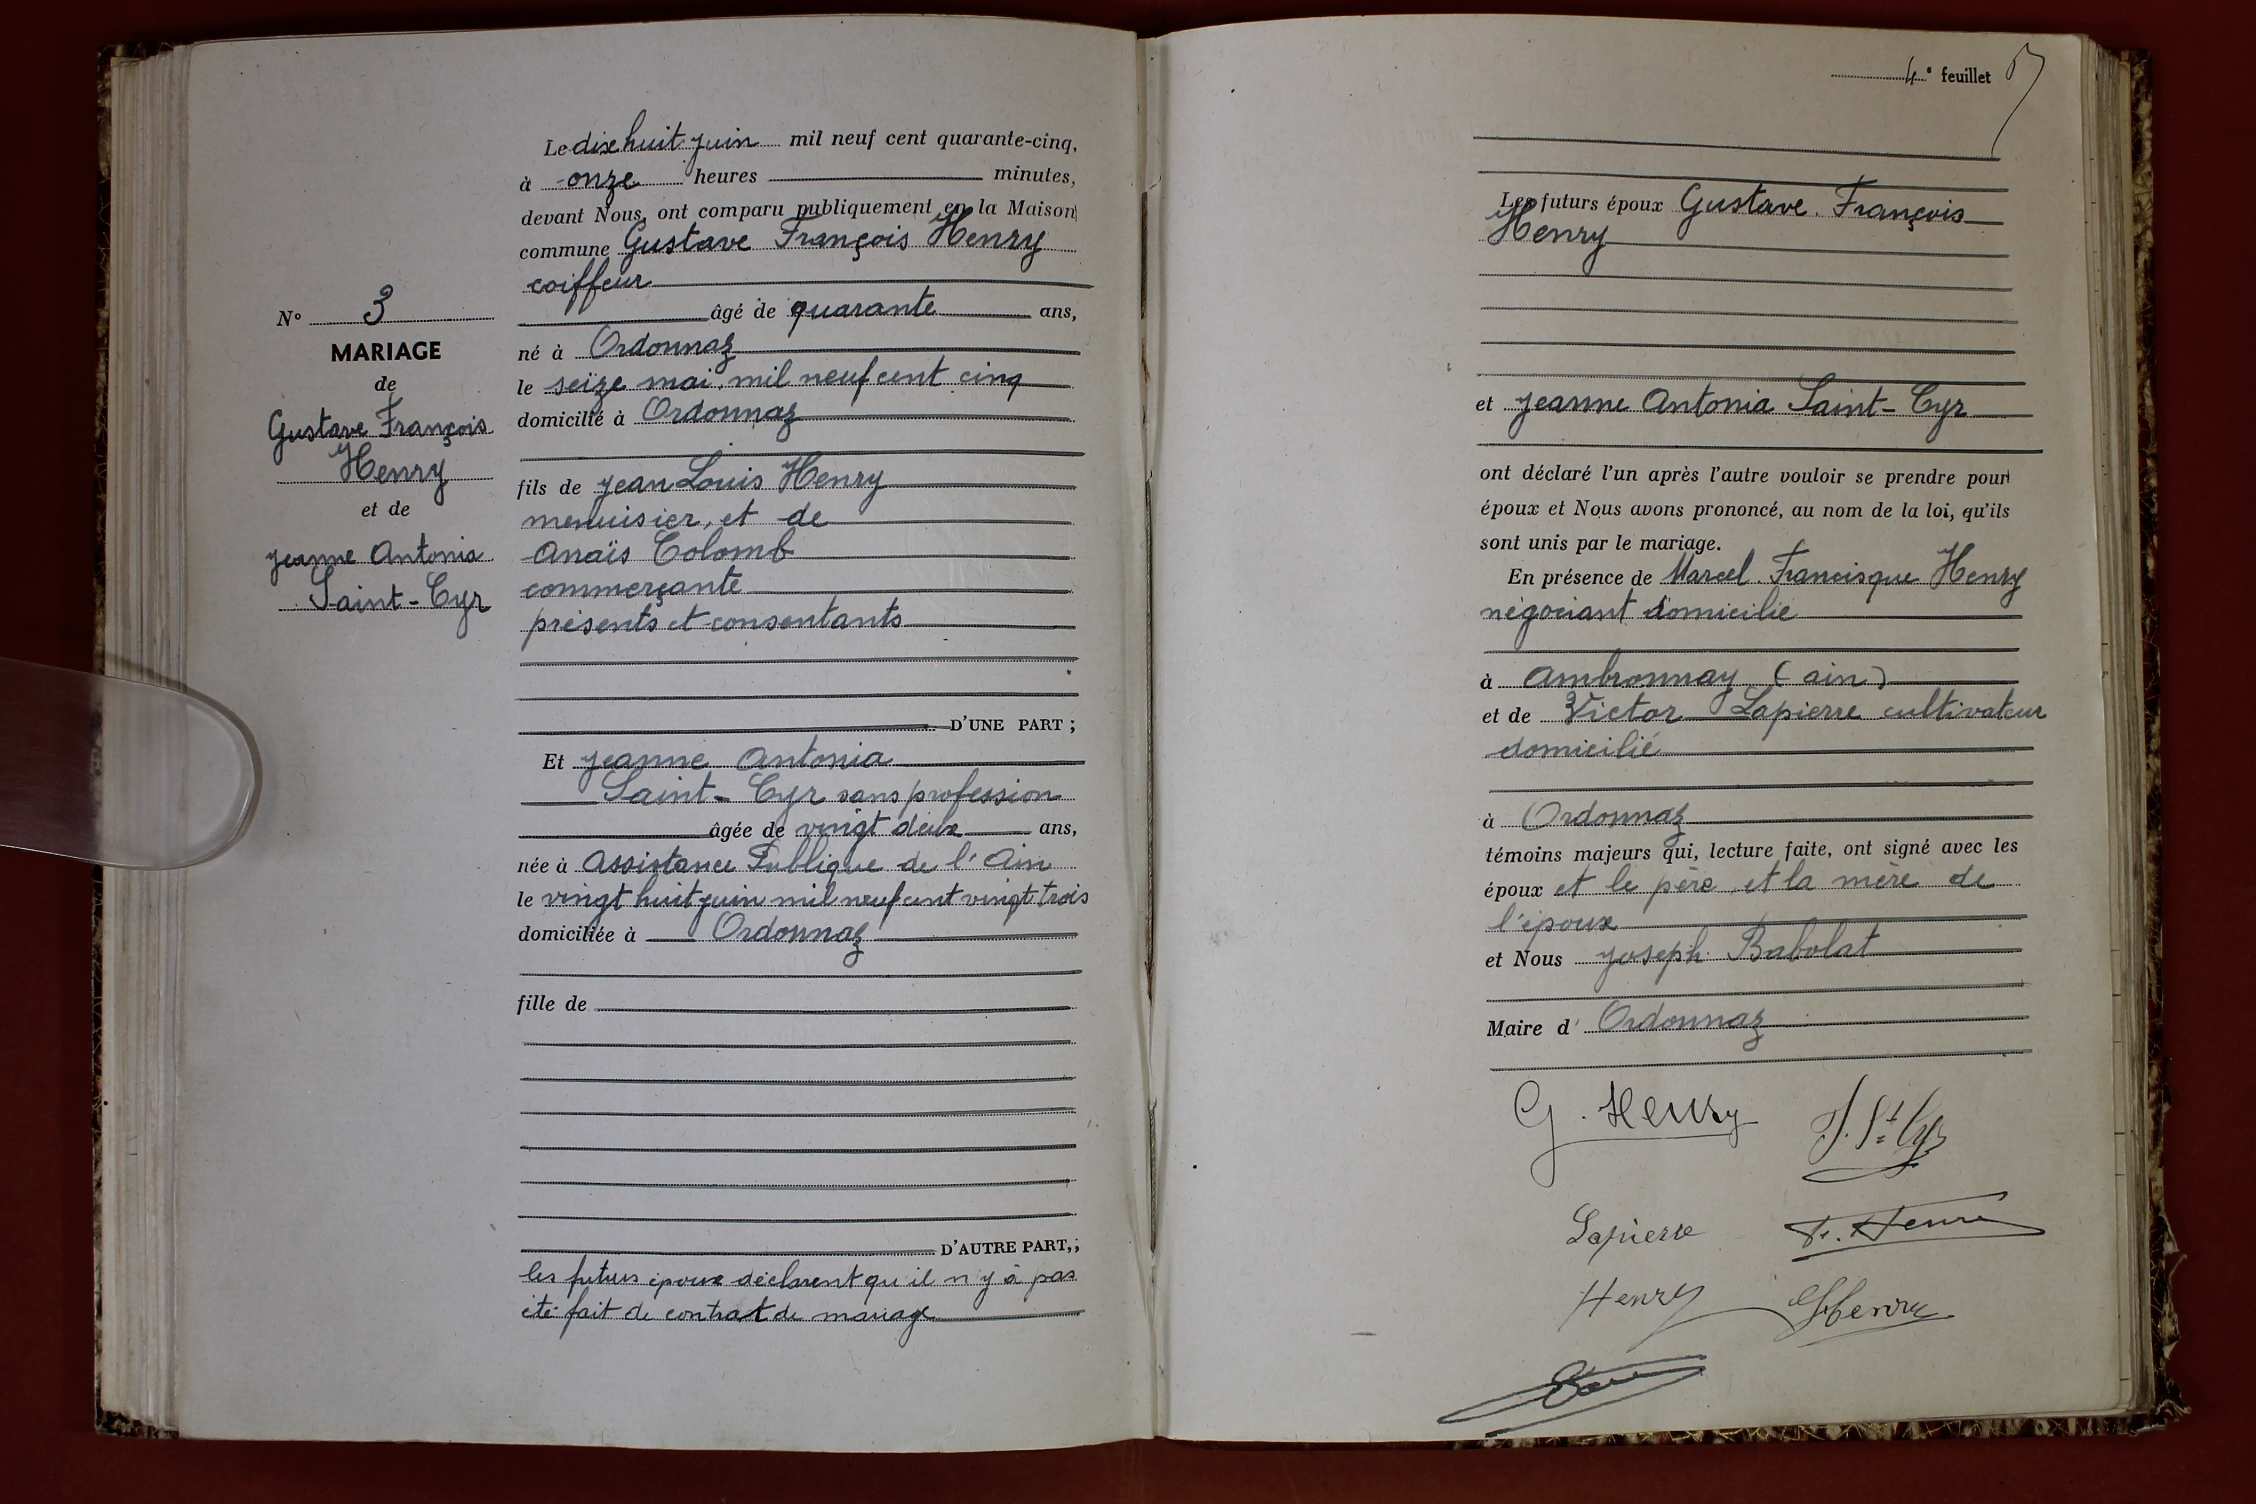 Le dix huit juin mil neuf cent quarante-cinq,
à onze heures minutes,
devant Nous, ont comparu publiquement en la Maison
commune Gustave François Henry
coiffeur
âgé de quarante ans,
né à Ordonnaz
le seize mai mil neuf cent cinq
domicilié à Ordonnaz
fils de Jean Louis Henry
menuisier, et de
Anaïs Colomb
commerçante
présents et consentants
D'UNE PART ;
Et Jeanne Antonia
Saint-Cyr sans profession
âgée de vingt deux ans,
née à Assistance Publique de l'Ain
le vingt huit juin mil neuf cent vingt trois
domiciliée à Ordonnaz
fille de
D'AUTRE PART,;
les futurs époux déclarent qu'il n'y à pas
été fait de contrat de mariage
N° 3
MARIAGE
de
Gustave François
Henry
et de
Jeanne Antonia
Saint-Cyr
4e feuillet
Les futurs époux Gustave François
Henry
et Jeanne Antonia Saint-Cyr
ont déclaré l'un après l'autre vouloir se prendre pour
époux et Nous avons prononcé, au nom de la loi, qu'ils
sont unis par le mariage.
En présence de Marcel Francisque Henry
négociant domicilié
à Ambronnay (ain)
et de Victor Lapierre cultivateur
domicilié
à Ordonnaz
témoins majeurs qui, lecture faite, ont signé avec les
époux et le père et la mère de
l'époux
et Nous Joseph Babolat
Maire d' Ordonnaz
G. Henry J. St Cyr
Lapierre Fr. Henry
Henry Henry